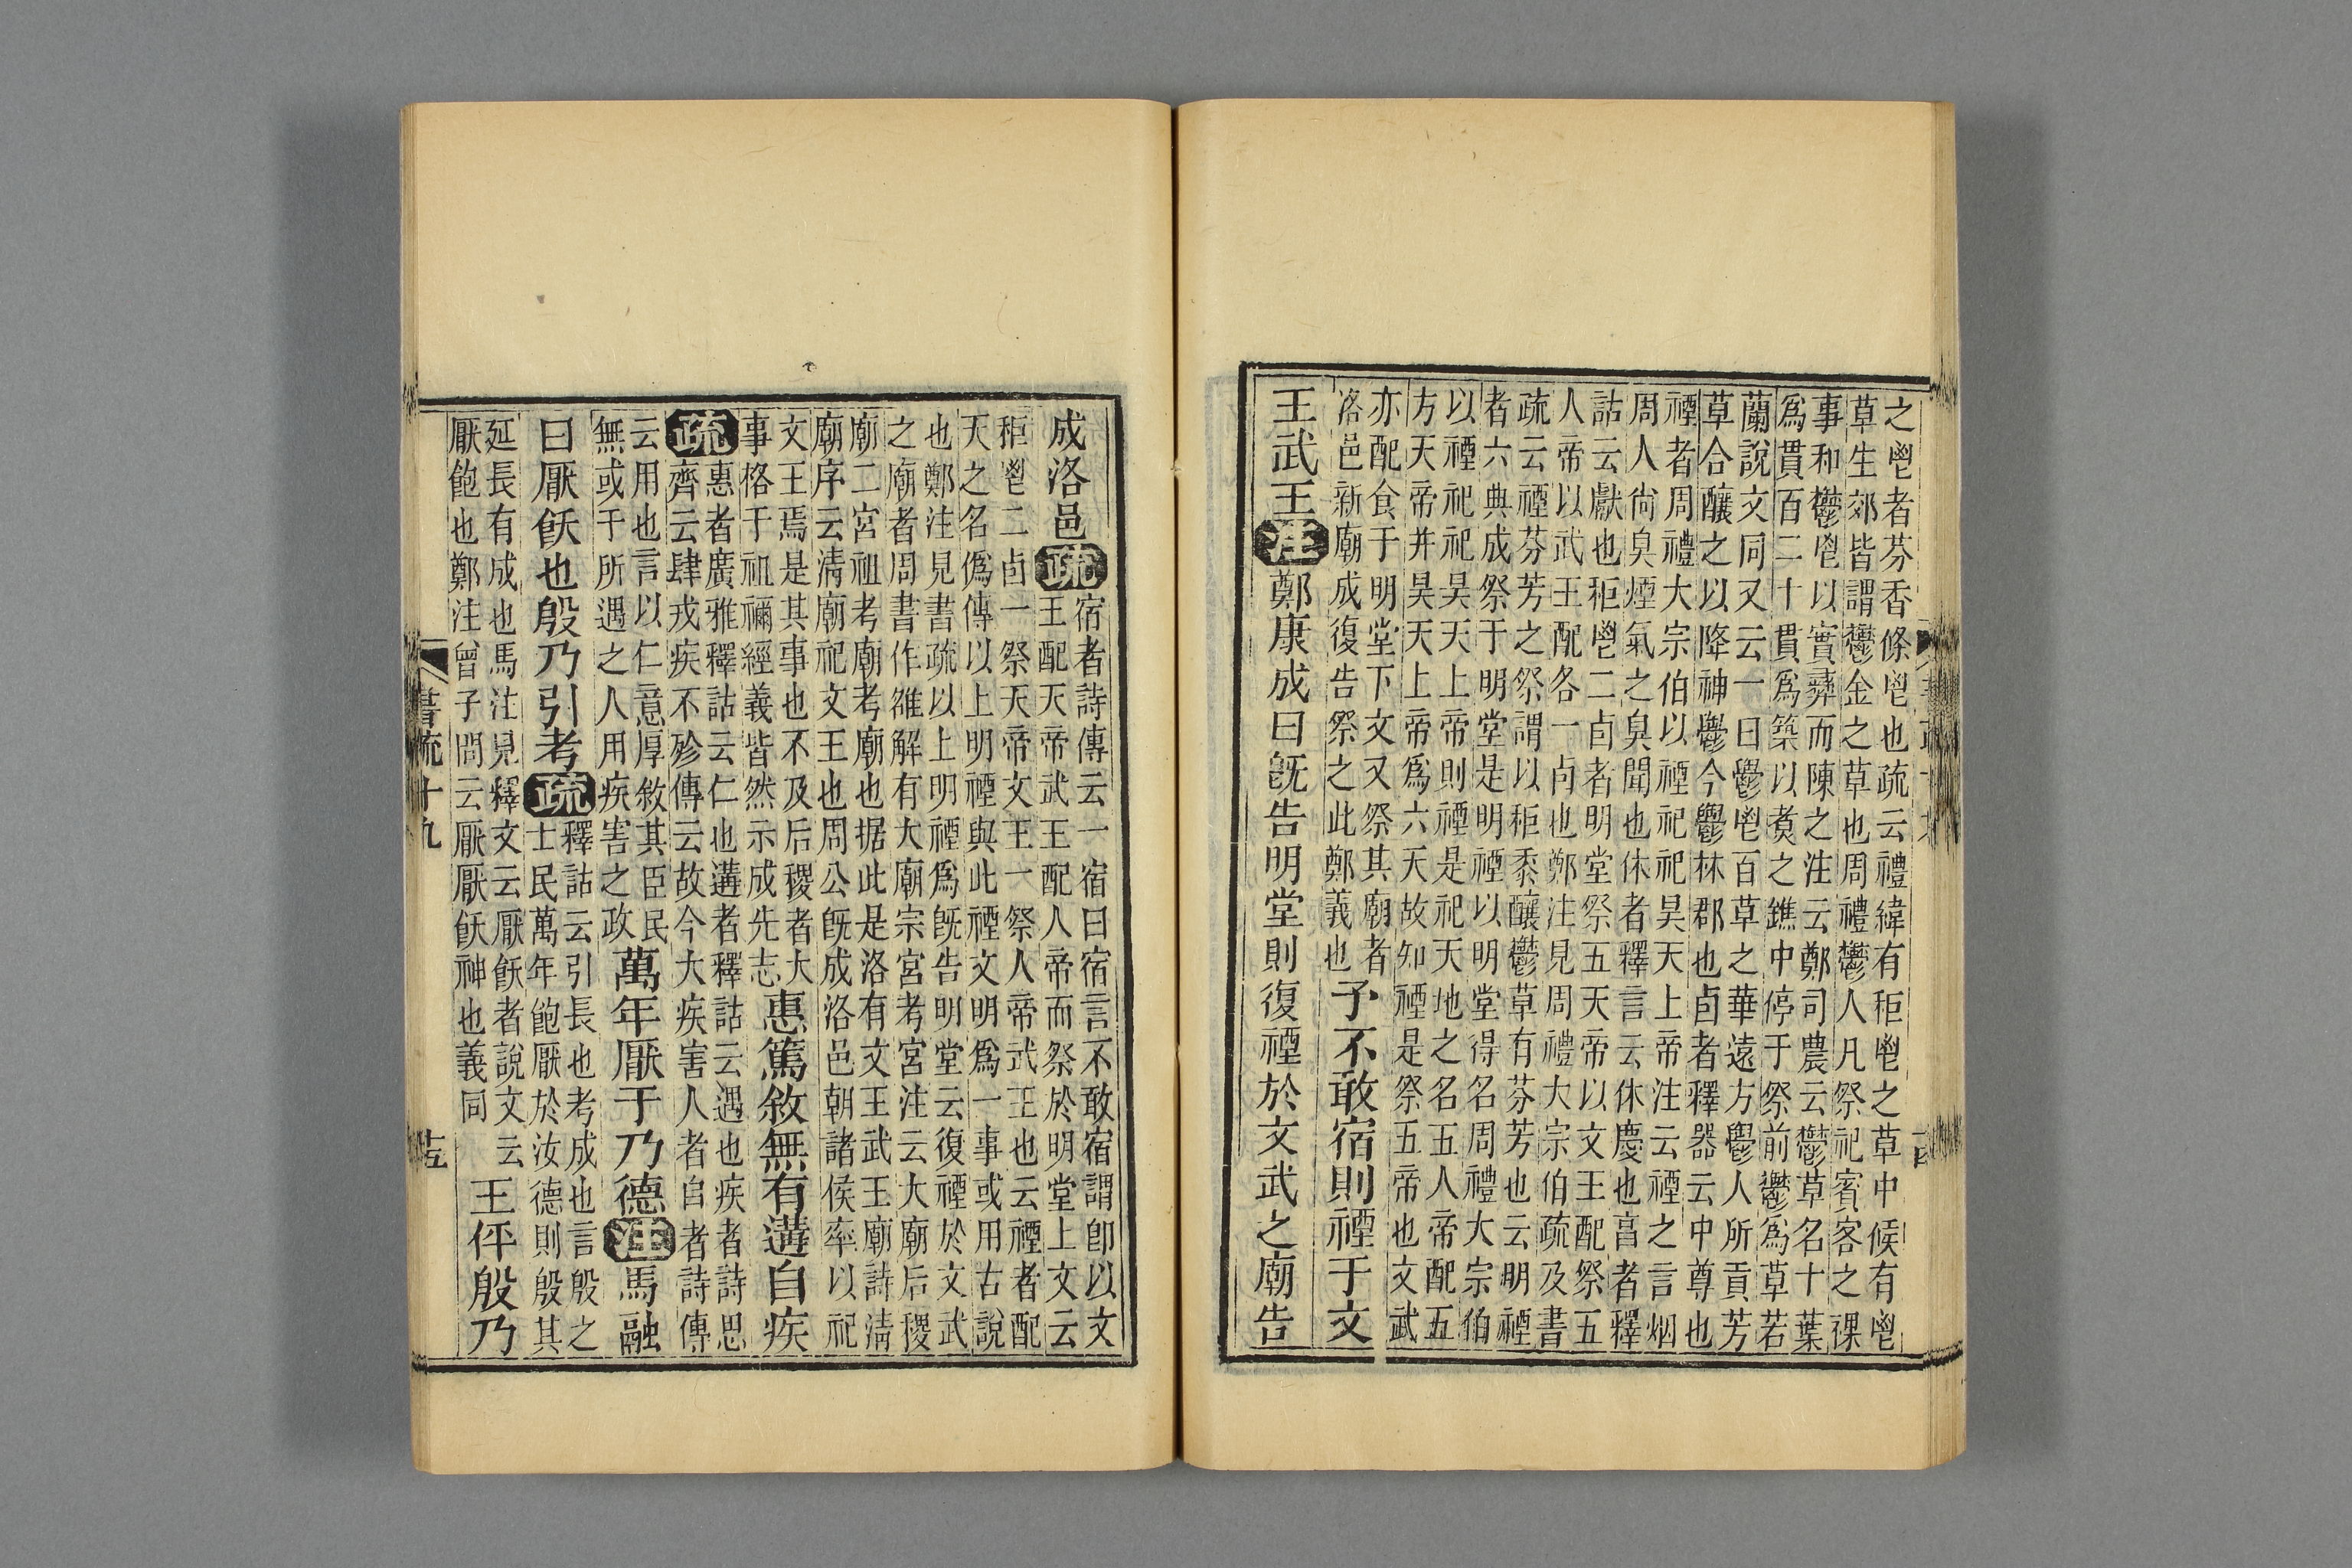 之鬯者芬香條鬯也疏云禮緯有秬鬯之草中候有鬯
草生郊皆謂鬱金之草也周禮鬱人凡祭祀賓客之祼
事和鬱鬯以實彝而陳之注云鄭司農云鬱草名十葉
爲貫百二十貫爲築以煑之鐎中停于祭前鬱爲草若
蘭說文同又云一曰鬱鬯百草之華遠方鬱人所貢芳
草合釀之以降神鬱今鬱林郡也卣者釋器云中尊也
禋者周禮大宗伯以禋祀祀昊天上帝注云禋之言烟
周人尙臭煙氣之臭聞也休者釋言云休慶也亯者釋
詁云獻也秬鬯二卣者明堂祭五天帝以文王配祭五
人帝以武王配各一卣也鄭注見周禮大宗伯疏及書
疏云禋芬芳之祭謂以秬黍釀鬱草有芬芳也云明禋
者六典成祭于明堂是明禋以明堂得名周禮大宗伯
以禋祀祀昊天上帝則禋是祀天地之名五人帝配五
方天帝并昊天上帝爲六天故知禋是祭五帝也文武
亦配食于明堂下文又祭其廟者
洛邑新廟成復告祭之此鄭義也
予不敢宿則禋于文
王武王注鄭康成曰旣告明堂則復禋於文武之廟告
成洛邑疏
宿者詩傳云一宿曰宿言不敢宿謂卽以文
王配天帝武王配人帝而祭於明堂上文云
秬鬯二卣一祭天帝文王一祭人帝武王也云禋者配
天之名僞傳以上明禋與此禋文明爲一事或用古說
也鄭注見書疏以上明禋爲旣告明堂云復禋於文武
之廟者周書作雒解有大廟宗宮考宮注云大廟后稷
廟二宮祖考廟考廟也据此是洛有文王武王廟詩淸
廟序云淸廟祀文王也周公旣成洛邑朝諸侯率以祀
文王焉是其事也不及后稷者大
事格于祖禰經義皆然示成先志
惠篤敘無有遘自疾
疏
惠者廣雅釋詁云仁也遘者釋詁云遇也疾者詩思
齊云肆戎疾不殄傳云故今大疾害人者自者詩傳
云用也言以仁意厚敘其臣民
無或于所遇之人用疾害之政
萬年厭于乃德注馬融
曰厭飫也殷乃引考疏
釋詁云引長也考成也言殷之
士民萬年飽厭於汝德則殷其
延長有成也馬注見釋文云厭飫者說文云
厭飽也鄭注曾子問云厭厭飫神也義同
王伻殷乃
書疏十九